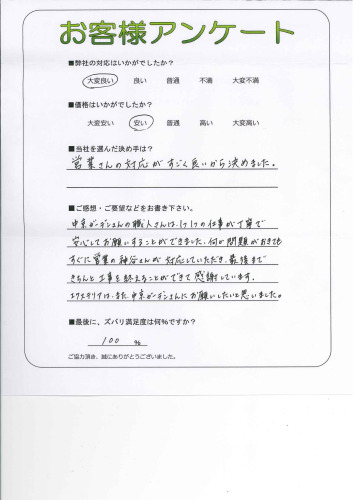 お客様アンケート
■弊社の対応はいかがでしたか?
大変良い 良い 普通 不満 大変不満
■価格はいかがでしたか?
大変安い 安い 普通 高い 大変高い
■当社を選んだ決め手は?
営業さんの対応がすごく良いから決めました。
■ご感想・ご要望などをお書き下さい。
中京ガーデンさんの職人さんは、1つ1つの仕事が丁寧で
安心してお願いすることができました。何か問題がおきても
すぐに営業の神谷さんが対応していただき、最後まで
きちんと工事を終えることができて感謝しています。
エクステリアは、また中京ガーデンさんにお願いしたいと思いました。
■最後に、ズバリ満足度は何%ですか?
100 %
ご協力頂き、誠にありがとうございました。